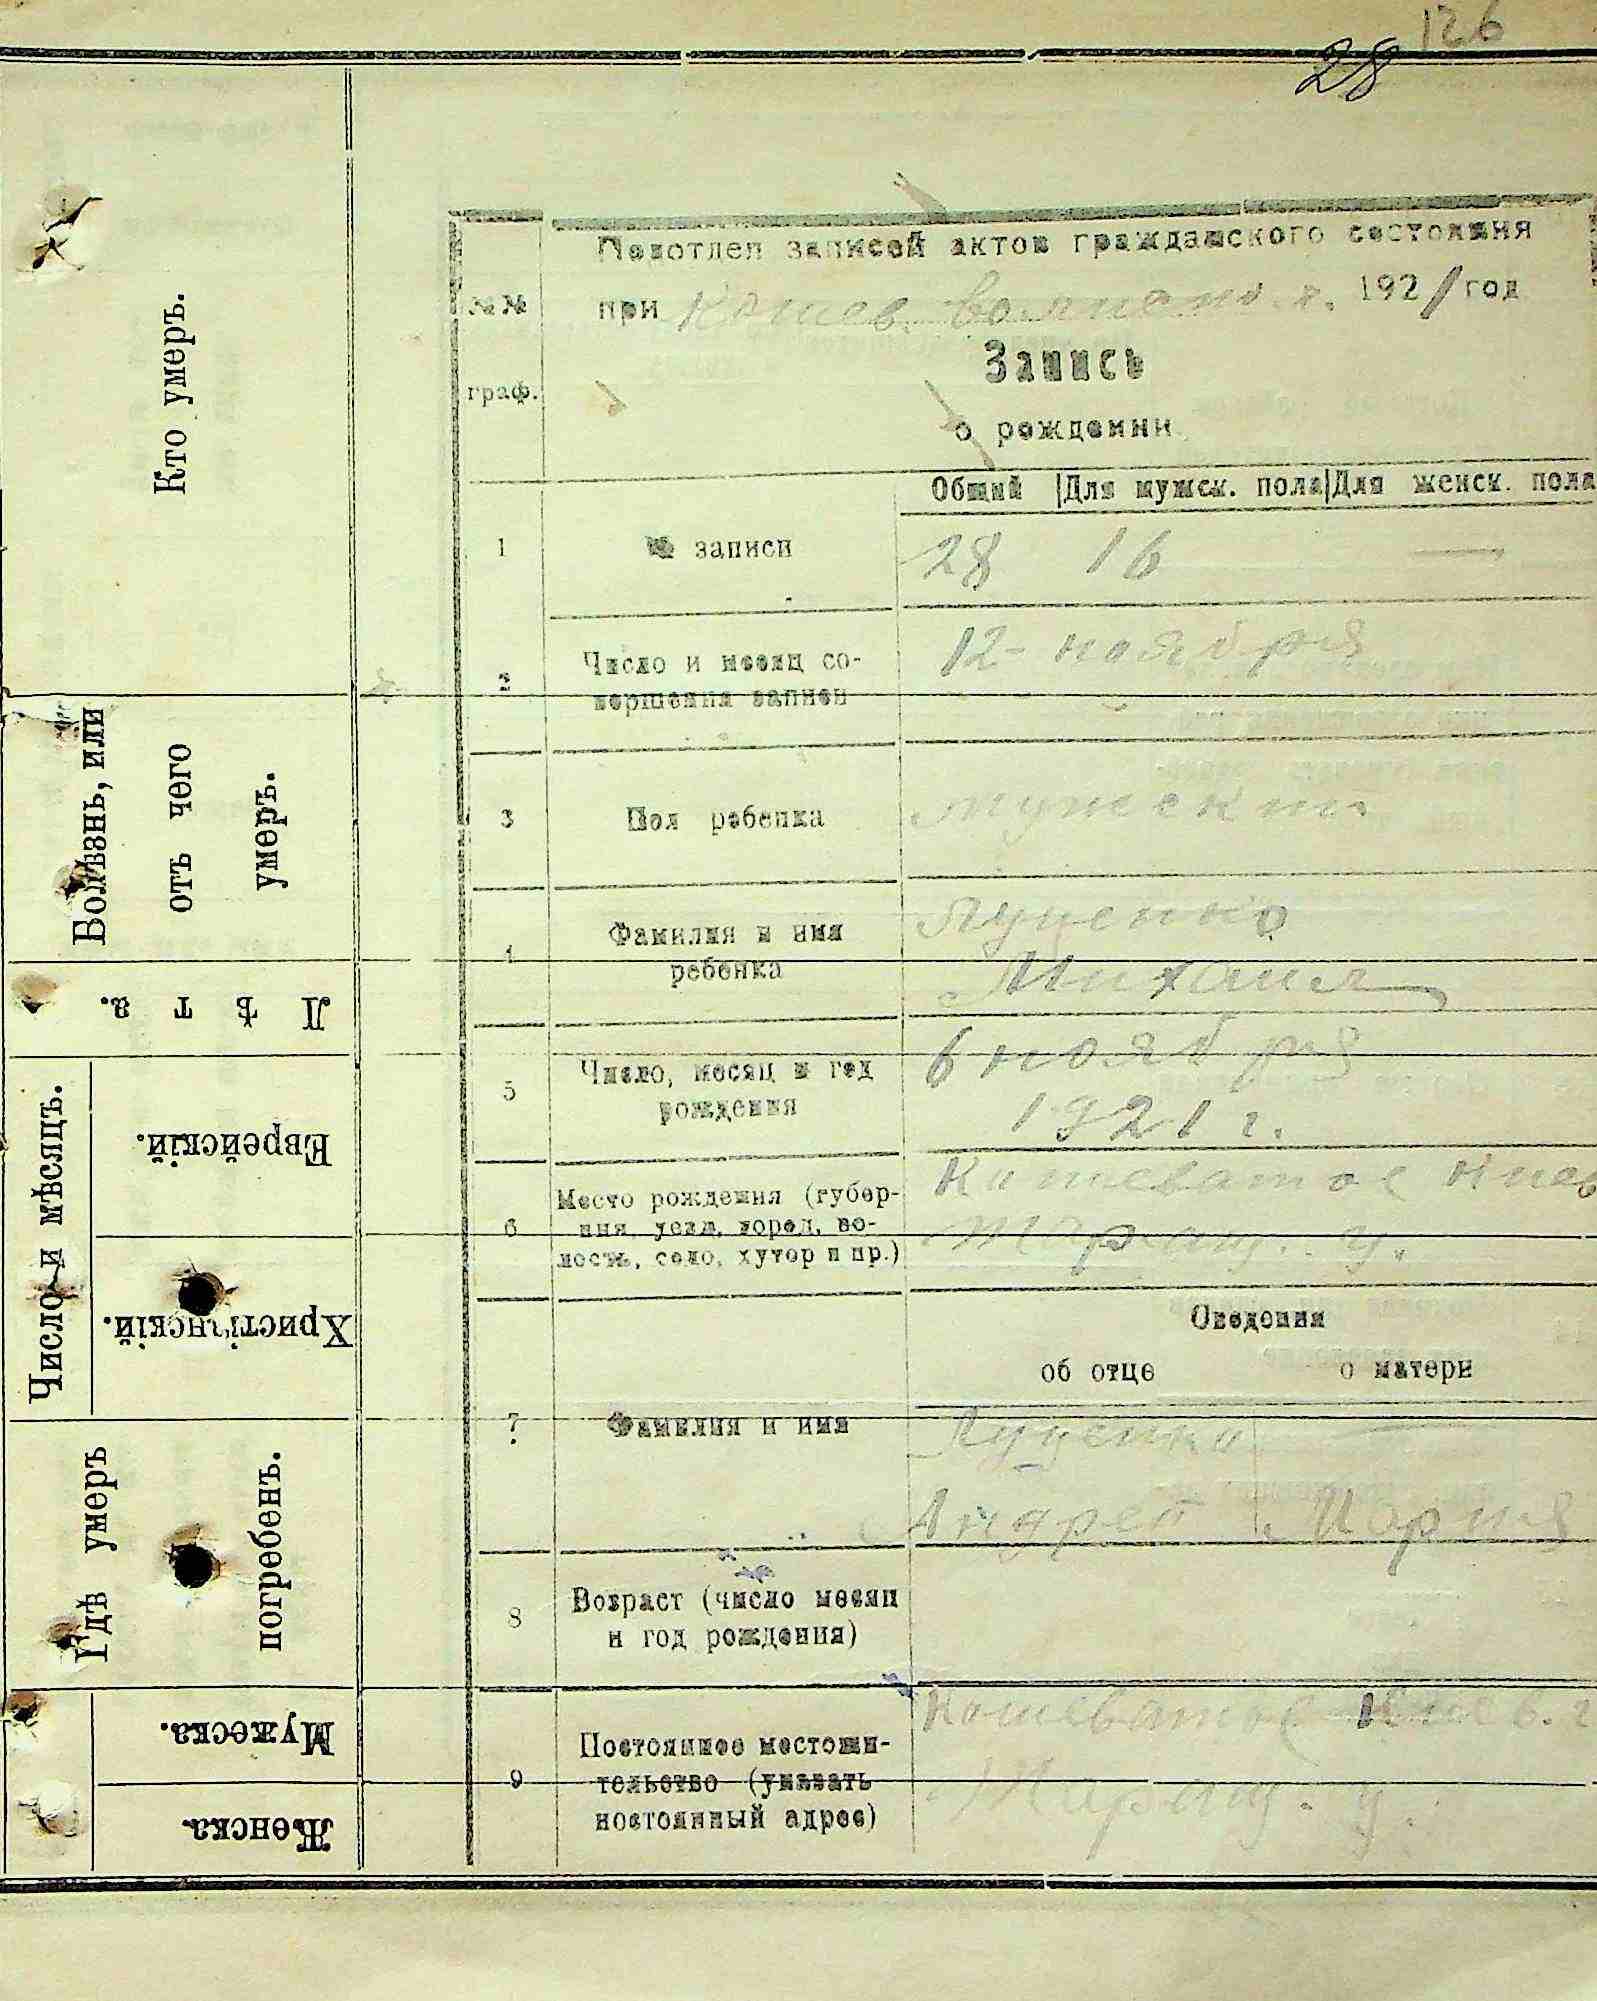 126
28
Кто умеръ.
Болѣзнь, или
отъ чего
умеръ.
Лѣта.
Число и мѣсяцъ.
Еврейскій.
Христіанскій.
Гдѣ умеръ
погребенъ.
Мужеска.
Женска.
№№
граф.
Подотдел записей актов гражданского состояния
при Кошев. 1921 год
Запись
о рождении
Общий Для мужск. пола Для женск. пола
1 № записи 28 16 —
2 Число и месяц со-
вершения записи
12 - ноября
3 Пол ребенка Мужеский
4 Фамилия и имя
ребенка
Луценко
Михаил
5 Число, месяц и год
рождения
6 ноября
1921 г.
6 Место рождения (губер-
ния, уезд, город, во-
лость, село, хутор и пр.)
Кошеватое Киев
Таращ. у.
Сведения
об отце о матери
7 Фамилия и имя
Луценко —
Андрей Мария
8 Возраст (число месяц
и год рождения)
9 Постоянное местожи-
тельство (указать
постоянный адрес)
Кошеватое Киев. г
Таращ. у.